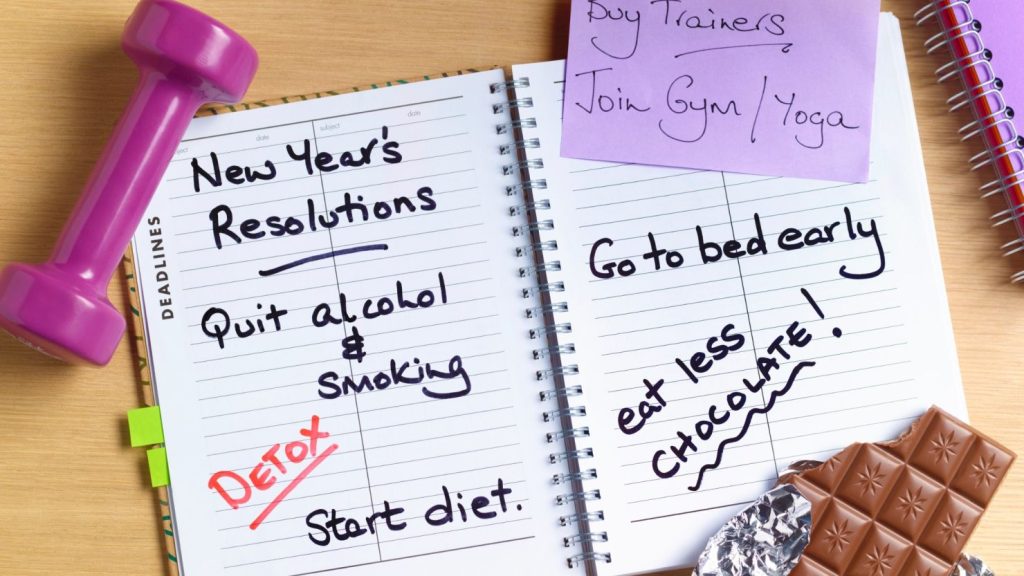 subject
date
subject
date
New Year's
Resolutions
DEADLINES
Quit alcohol
&
smoking
DETOX
Start diet.
Buy Trainers
Join Gym / Yoga
Go to bed early
eat less
CHOCOLATE!